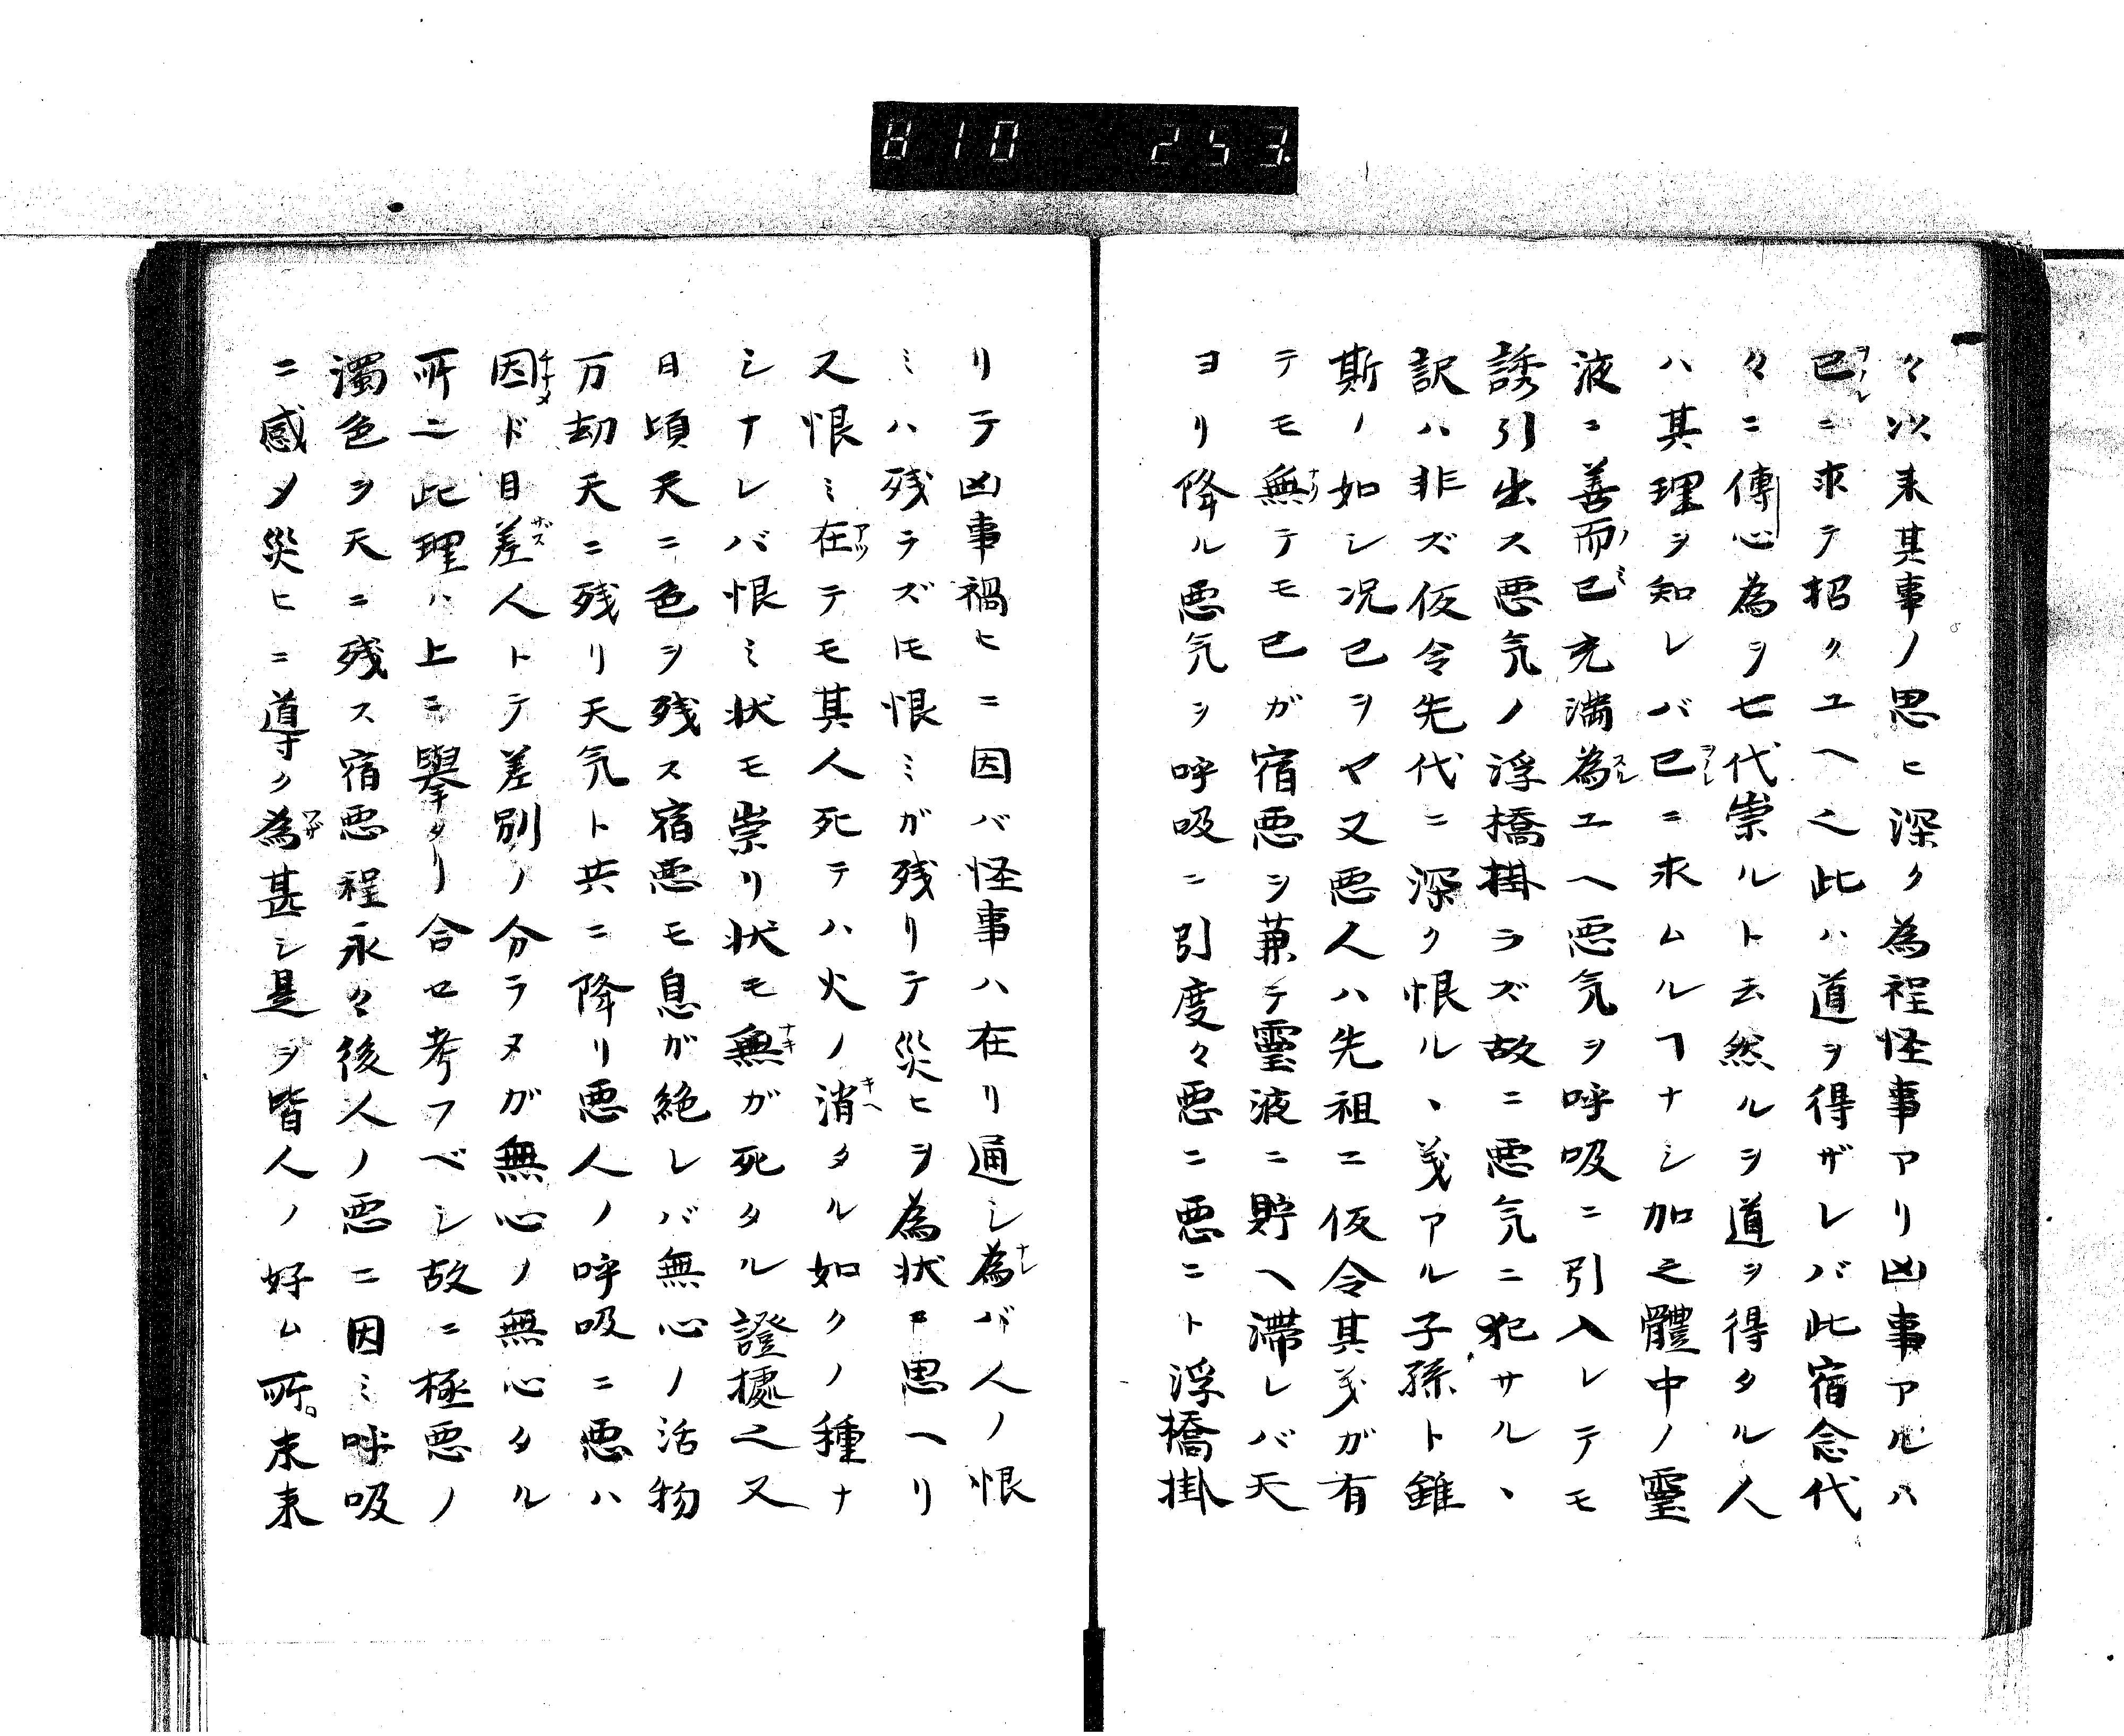 810 253.
々以来其事ノ思ヒ深ク為程怪事アリ凶事アルハ
已ニ求テ招クユヘ之此ハ道ヲ得ザレバ此宿念代
々ニ傳心為ヲ七代崇ルト云然ルヲ道ヲ得タル人
ハ其理ヲ知レバ已ニ求ムルヿナシ加之體中ノ霊
液ニ善而已充満為ユヘ悪気ヲ呼吸ニ引入レテモ
誘引出ス悪気ノ浮橋掛ラズ故ニ悪気ニ犯サルヽ
訳ハ非ズ仮令先代ニ深ク恨ルヽ義アル子孫ト雖
斯ノ如シ况已ヲヤ又悪人ハ先祖ニ仮令其義ガ有
テモ無テモ已ガ宿悪ヲ兼テ霊液ニ貯ヘ滞レバ天
ヨリ降ル悪気ヲ呼吸ニ引度々悪ニ悪ニト浮橋掛
リテ凶事禍ヒニ因バ怪事ハ在リ通シ為バ人ノ恨
ミハ残ラズ𪜈恨ミガ残リテ災ヒヲ為状ニ思ヘリ
又恨ミ在テモ其人死テハ火ノ消タル如クノ種ナ
シナレバ恨ミ状モ崇リ状モ無ガ死タル證據之又
日頃天ニ色ヲ残ス宿悪モ息ガ絶レバ無心ノ活物
万劫天ニ残リ天気ト共ニ降リ悪人ノ呼吸ニ悪ハ
因ド目差人トテ差別ノ分ラヌガ無心ノ無心タル
所ニ此理ハ上ニ擧タリ合セ考フベシ故ニ極悪ノ
濁色ヲ天ニ残ス宿悪程永々後人ノ悪ニ因ミ呼吸
ニ感メ災ヒニ導ク為甚シ是ヲ皆人ノ好ム所。末末